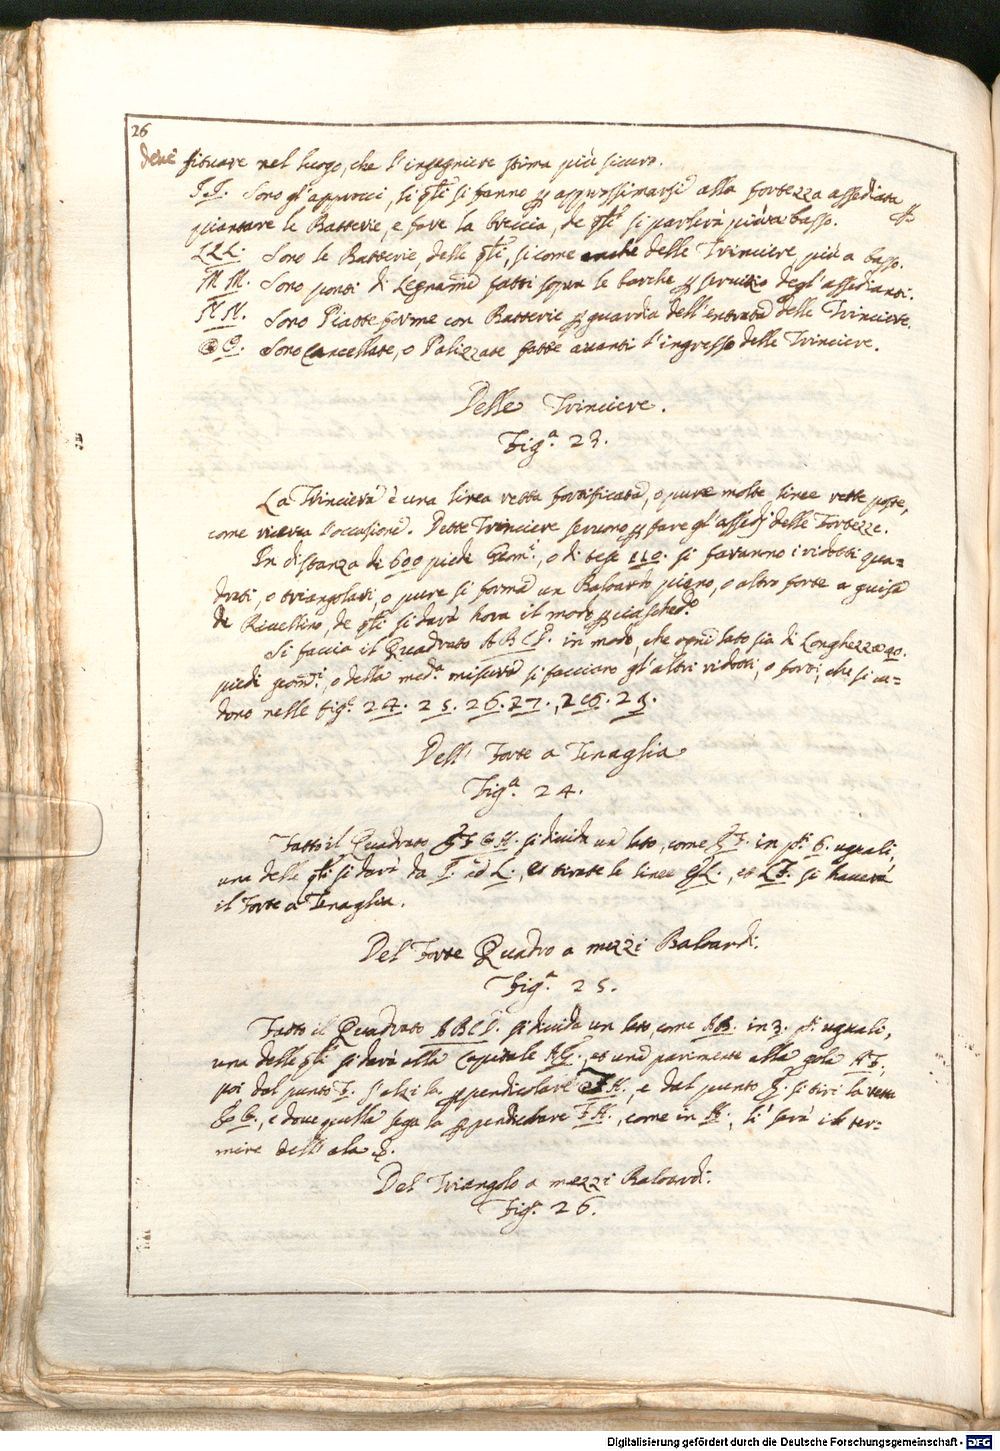 26
deue situare nel luogo, che l'ingegniere stima più sicuro.
I I. Sono gl'approcci, li qli si fanno p approssimarsi alla fortezza assediata
piantare le Batterie, e fare la breccia, de qli si parlerà più a basso.
LLL. Sono le Batterie, delle qli, si come anche delle Trinciere, più a basso.
M M. Sono ponti di Legname fatti sopra le barche p seruitio degl'assedianti.
N N. Sono Piatteforme con Batterie p guardia dell'entrata delle Trinciere.
O O. Sono Cancellate, o Palizzate fatte auanti l'ingresso delle Trinciere.
Delle Trinciere.
Figa. 23.
La Trinciera è una linea retta fortificata, o pure molte linee rette poste,
come ricerca l'occasione. Dette Trinciere seruono p fare gl'assedij delle Fortezze.
In distanza de 600 piedi Geomi, o di tese 110. si faranno i ridotti qua=
drati, o triangolari, o pure si forma un Baloardo pieno, o altro forte a guisa
di Riuellino, de qli si darà hora il modo p ciaschedo
Si faccia il Quadrato A B C D. in modo, che ogni lato sia di Longhezza 90.
piedi geomi, o della meda misura si facciano gl'altri ridotti, o forti, che si ue=
dono nelle fige 24. 25. 26. 27., 28. 29.
Dell' Forte a Tenaglia
Figa. 24.
Fatto il Quadrato si diuida un lato, come in pti 6. uguali,
una delle qli si darà da I. ad L., et tirate le linee et si hauerà
il Forte a Tenaglia.
Del Forte Quadro a mezzi Baloardi.
Figa. 25.
Fatto il Quadrato A B C D. si diuida un lato come A B. in 3. pti uguali,
una delle qli si darà alla Capitale et una parimente alla gola
poi dal punto F. s'alzi la ppendicolare F H., e dal punto si tiri la retta
e doue quella sega la ppendicolare F H., come in H., li sarà il ter=
mine dell' ala
Del Triangolo a mezzi Baloardi.
Fige. 26.
Digitalisierung gefördert durch die Deutsche Forschungsgemeinschaft - DFG